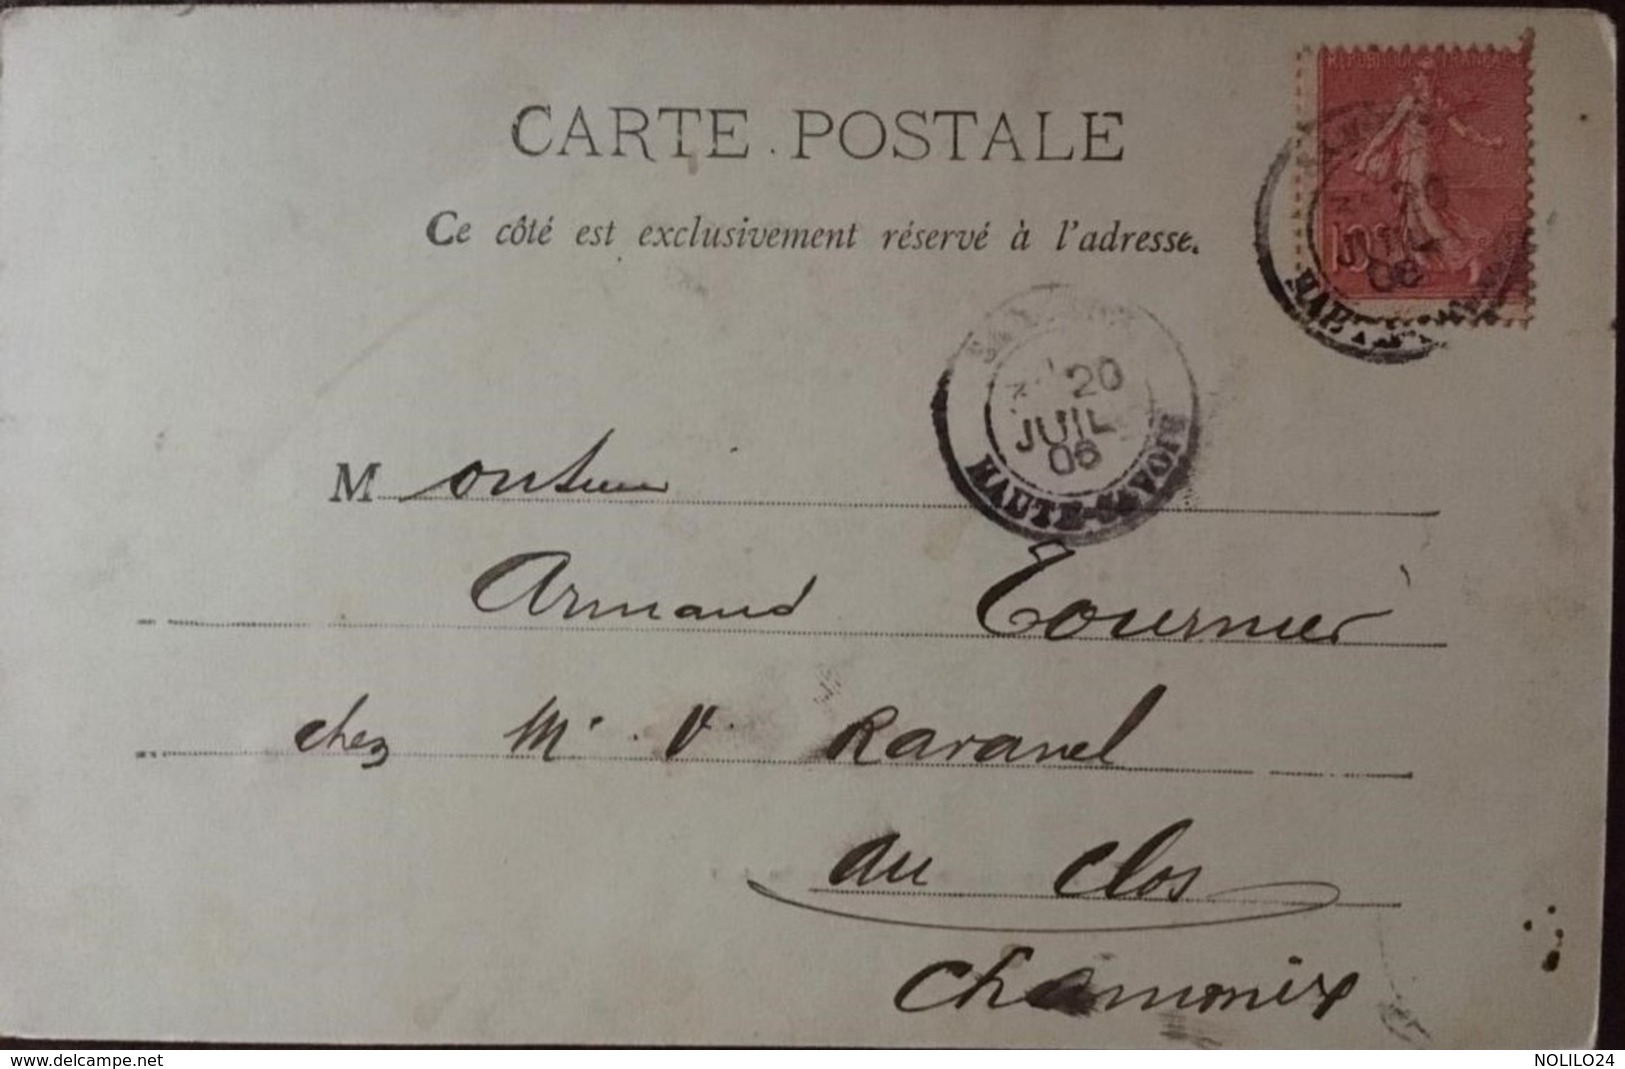 CARTE POSTALE
Ce côté est exclusivement réservé à l'adresse.
REPUBLIQUE FRANÇAISE
10
20
JUIL
06
HAUTE-SAVOIE
20
JUIL
06
HAUTE-SAVOIE
Monsieur
Armand Tournier
chez Mr. V. Ravanel
au Clos
Chamonix
www.delcampe.net
NOLILO24